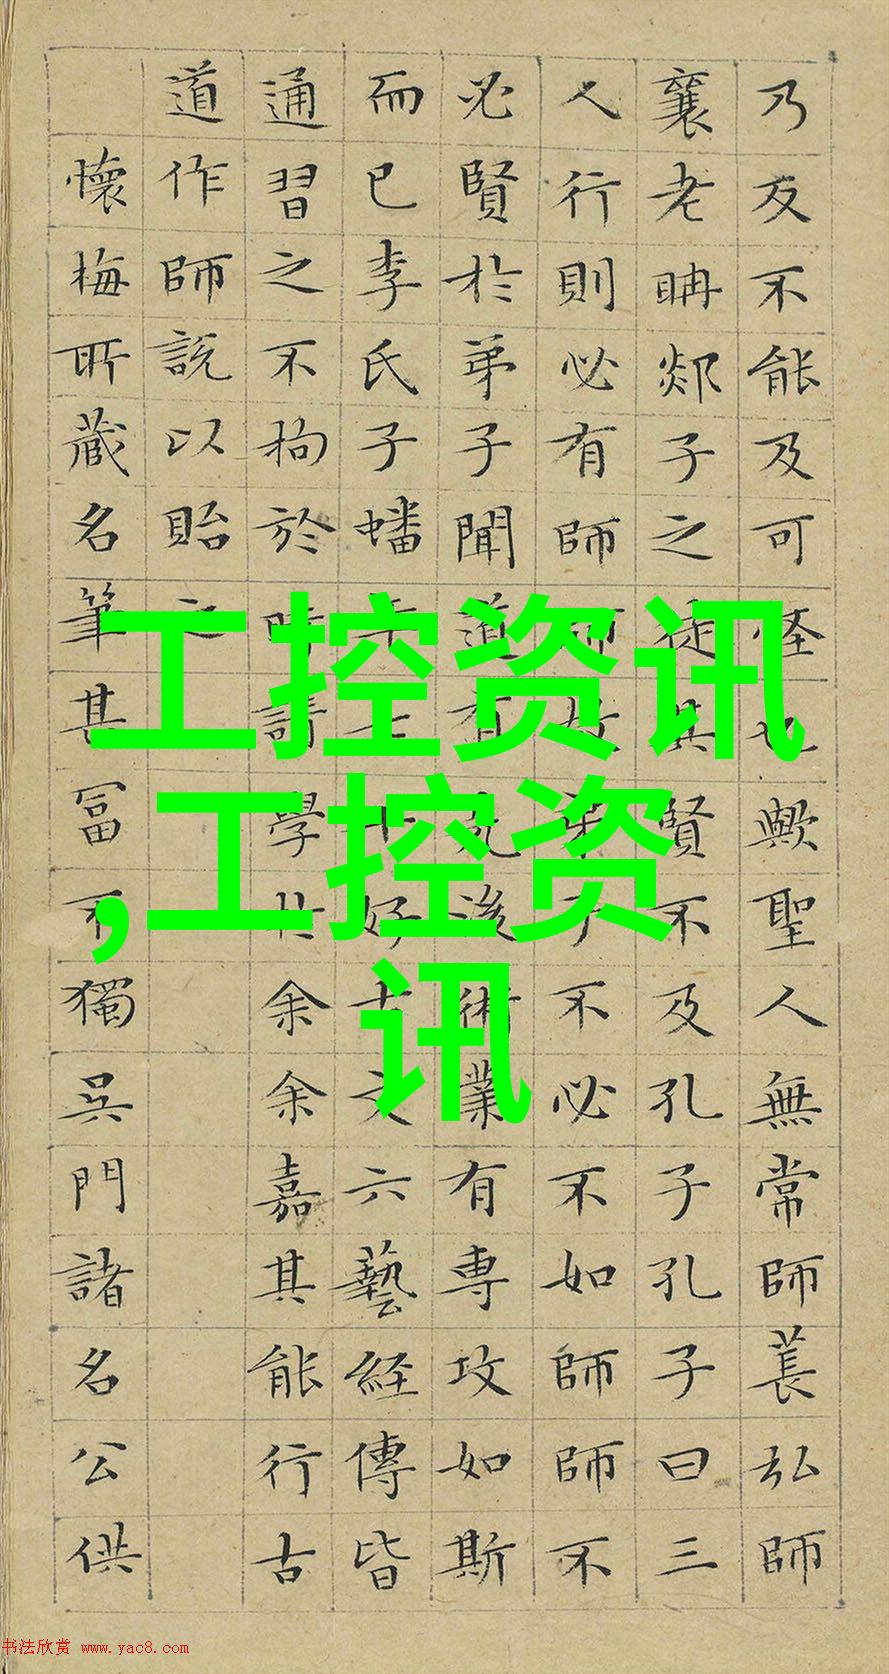 乃反不能及可怪也歟聖人無常師萇弘師
襄老聃郯子之徒其賢不及孔子孔子曰三
人行則必有師故弟子不必不如師師不
必賢於弟子聞道有先後術業有專攻如斯
而已李氏子蟠年十好古文六藝経傳皆
通習之不拘於時請學於余余嘉其能行古
道作師說以貽之
懷梅所藏名筆甚富不獨吳門諸名公供
工控资讯
,工控资
讯
书法欣赏 www.yac8.com